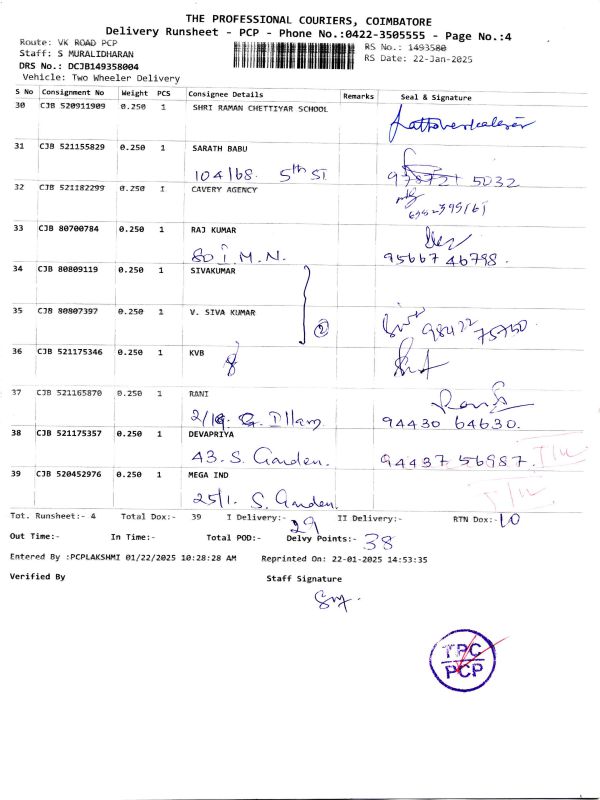 THE PROFESSIONAL COURIERS, COIMBATORE
Delivery Runsheet - PCP - Phone No.:0422-3505555 - Page No.:4
Route: VK ROAD PCP
RS No.: 1493580
Staff: S MURALIDHARAN
RS Date: 22-Jan-2025
DRS No.: DCJB149358004
Vehicle: Two Wheeler Delivery
S No Consignment No Weight PCS Consignee Details Remarks Seal & Signature
30 CJB 520911909 0.250 1 SHRI RAMAN CHETTIYAR SCHOOL
31 CJB 521155829 0.250 1 SARATH BABU
104/68. 5th ST 5032
32 CJB 521182299 0.250 1 CAVERY AGENCY
33 CJB 80700784 0.250 1 RAJ KUMAR
80 I.M.N. 95667 46798.
34 CJB 80809119 0.250 1 SIVAKUMAR
35 CJB 80807397 0.250 1 V. SIVA KUMAR
② 98422 75750
36 CJB 521175346 0.250 1 KVB
37 CJB 521165870 0.250 1 RANI
Illam 94430 64630.
38 CJB 521175357 0.250 1 DEVAPRIYA
43. S. Garden. 94437 56987.
39 CJB 520452976 0.250 1 MEGA IND
25/1. S. Garden.
Tot. Runsheet:- 4 Total Dox:- 39 I Delivery:- 29 II Delivery:- RTN Dox:- 10
Out Time:- In Time:- Total POD:- Delvy Points:- 38
Entered By :PCPLAKSHMI 01/22/2025 10:28:28 AM Reprinted On: 22-01-2025 14:53:35
Verified By Staff Signature
TPC
PCP